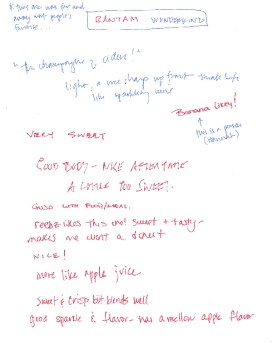 * this one was far and
away most people's
favorite...
BANTAM WUNDERKIND
champagne & cider!"
light, a nice sharp up front
like sparkling wine
Banana Likey!
this is a person
(Hannah)
VERY SWEET
GOOD BODY - NICE AFTERTASTE
A LITTLE TOO SWEET.
GOOD WITH FOOD/MEAL.
likes this one! sweet + tasty -
makes me want a donut
NICE!
more like apple juice
Sweet & crisp but blends well
good sparkle & flavor - has a mellow apple flavor